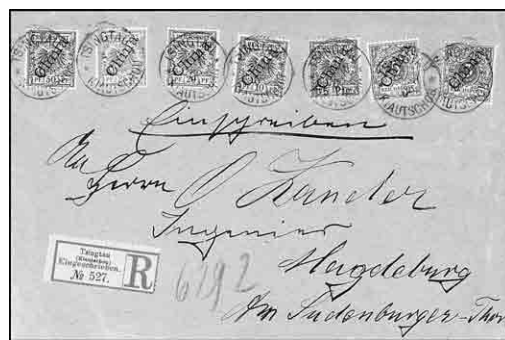 TSINGTAU
KIAUTSCHOU
China
China
China
China
China
China
China
25 Pfg.
Einschreiben
An
Herrn O Kander
Ingenier
Magdeburg
Am Sudenburger-Thor
Tsingtau
(Kiautschou)
Eingeschrieben.
№ 527.
R
6192